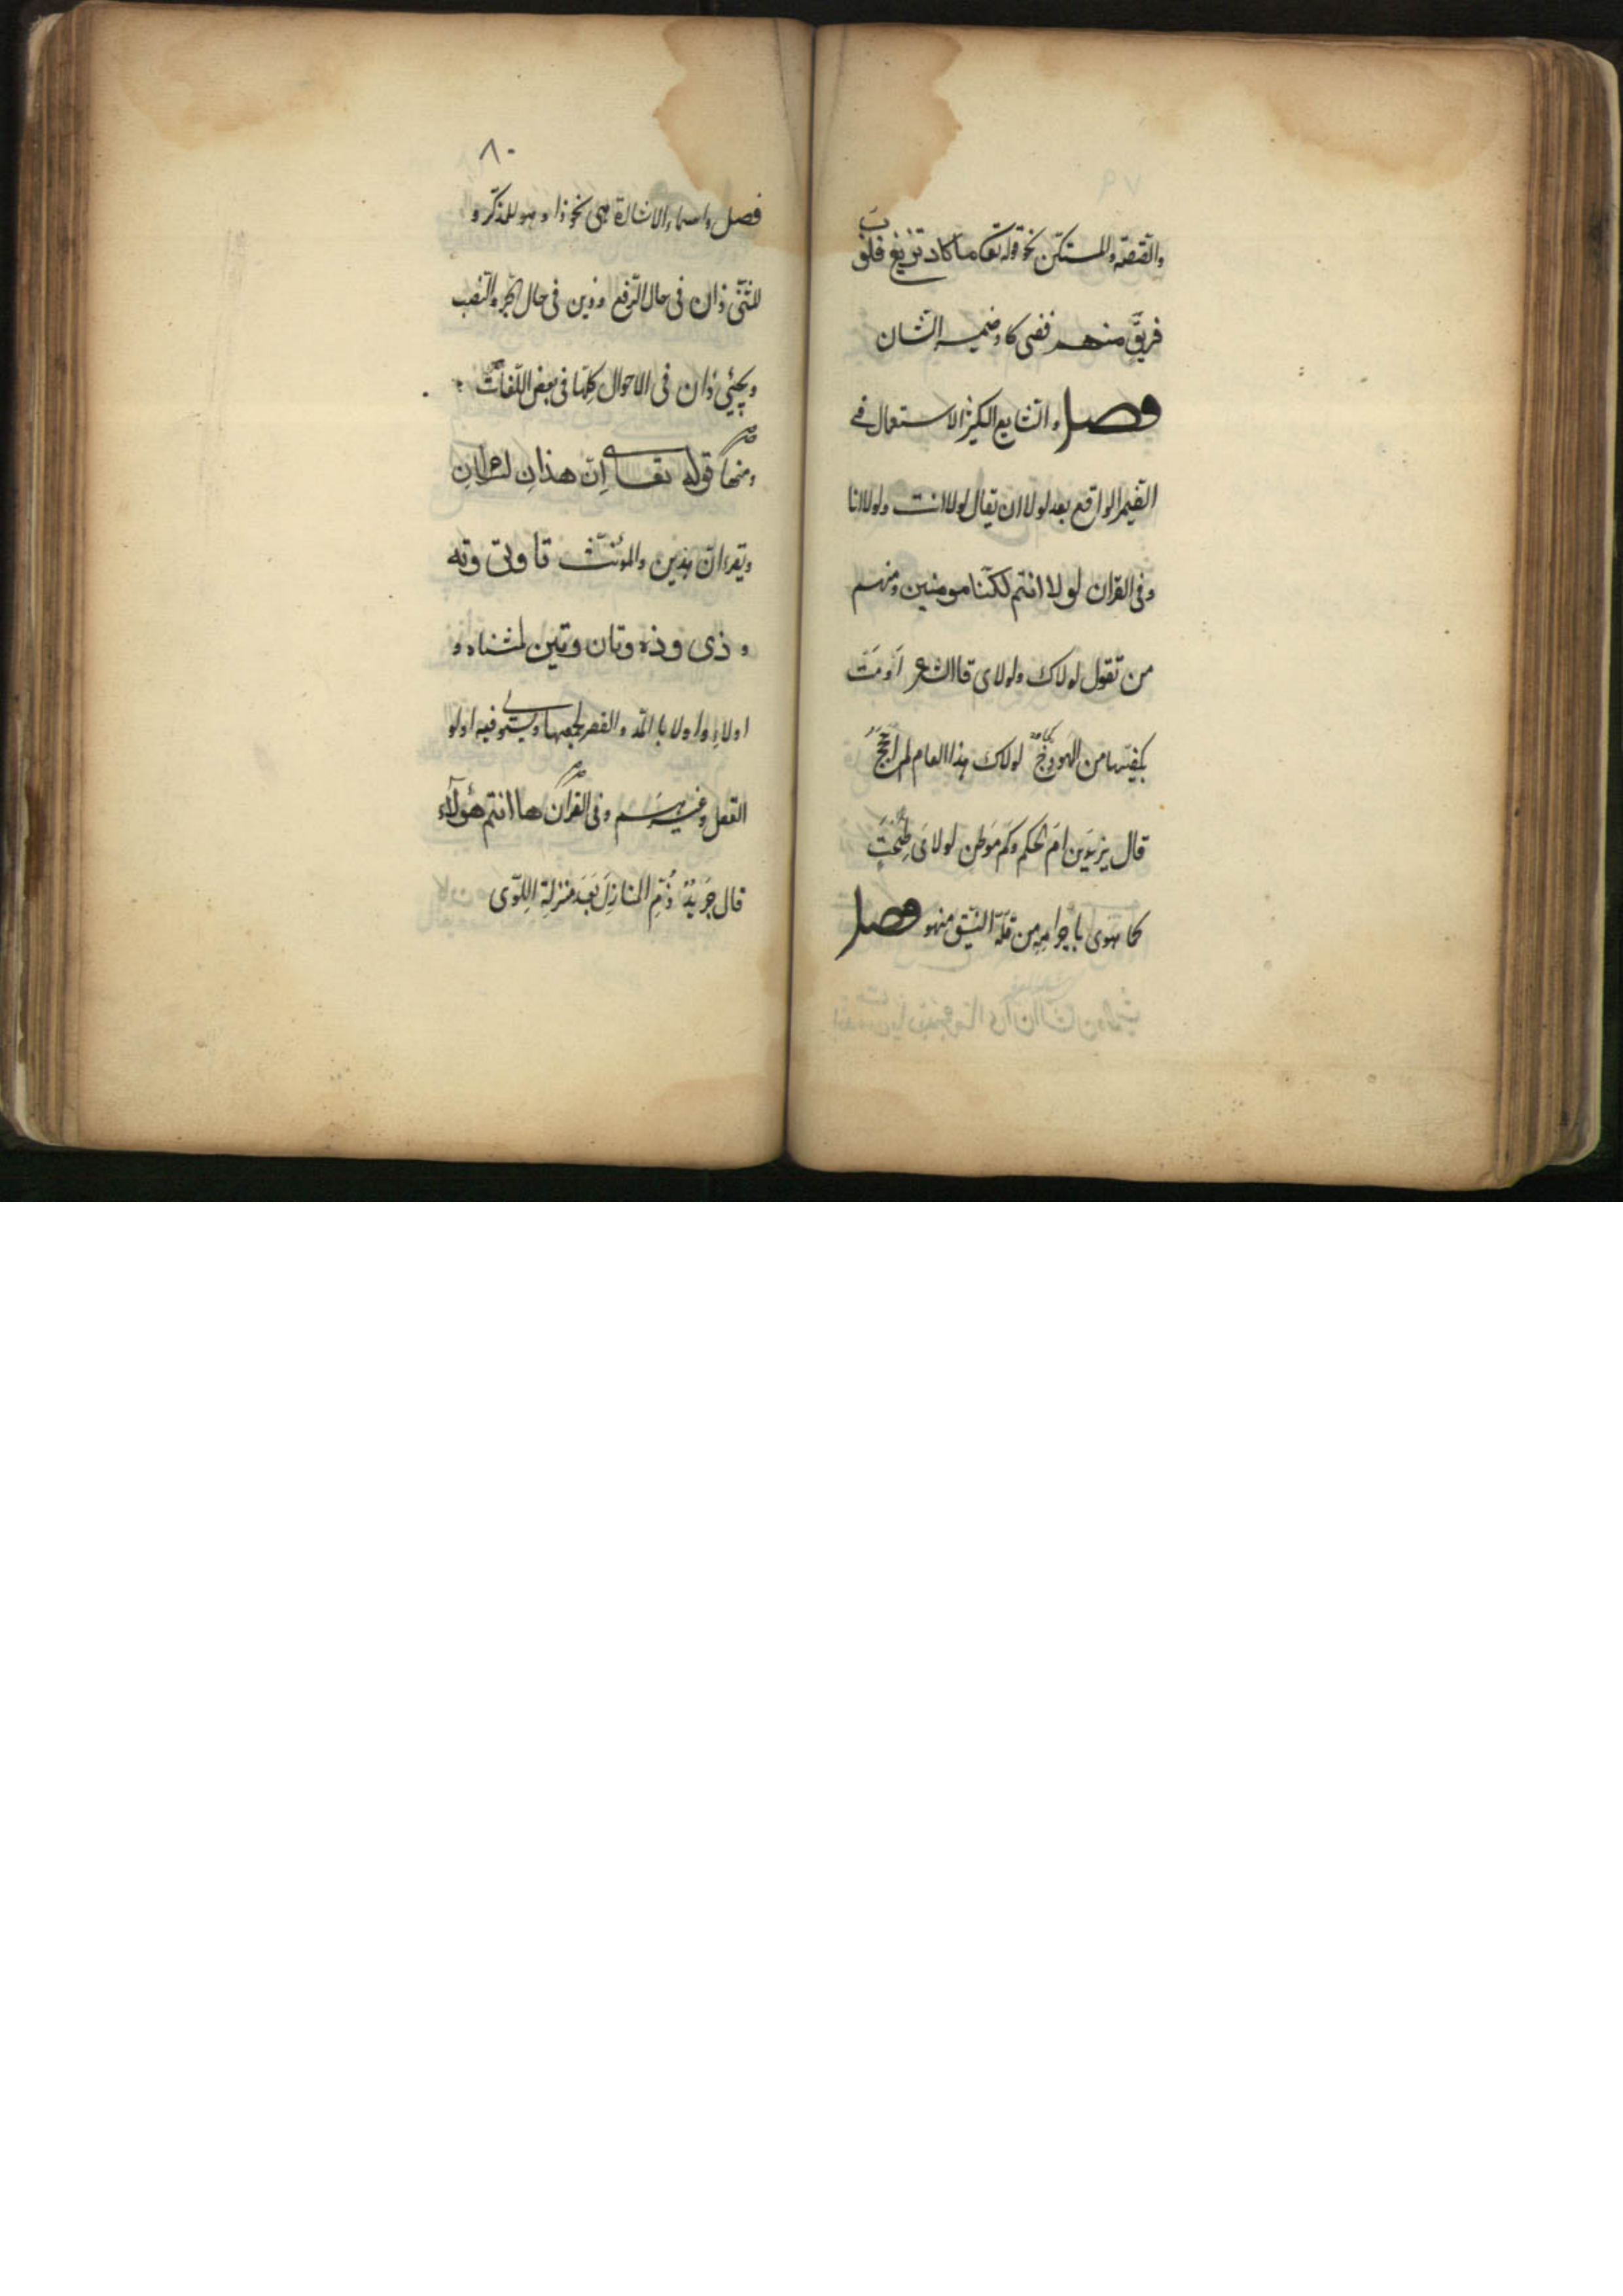 والقصة والمستكن نحو قوله تعالى ما كاد تزيغ قلوب
فريق منهم ففي كاد ضمير الشان
فصل والشايع الكثير الاستعمال في
الضمير الواقع بعد لولا ان يقال لولا انت ولولا انا
وفي القران لولا انتم لكنا مومنين ومنهم
من تقول لولاك ولولاي قال الشاعر اَومَت
بكفيها من الهودج لولاك هذا العام لم احجج
قال يزيد بن ام الحكم وكم موطن لولاي طِحتَ
كما هوى باجرامه من قلة النيق منهو فصل
٨٠
فصل واسماء الاشارة هي نحو ذا وهو للمذكر و
للمثنى ذان في حال الرفع وذين في حال الجر والنصب
ويجيئ ذان في الاحوال كلها في بعض اللغات
ومنها قوله تعالى اِنّ هذانِ لساحرانِ
ويقراءن هذين والمؤنث تا وتي وته
و ذي وذه وتان وتين لمثناه و
اولاءِ واولا بالمد والقصر لجمعها ويستوي فيه اولو
العقل وغيرهم وفي القرآن ها انتم هؤلآء
قال جرير ذُمَّ المنازِلَ بَعدَ منزلةِ اللِوى